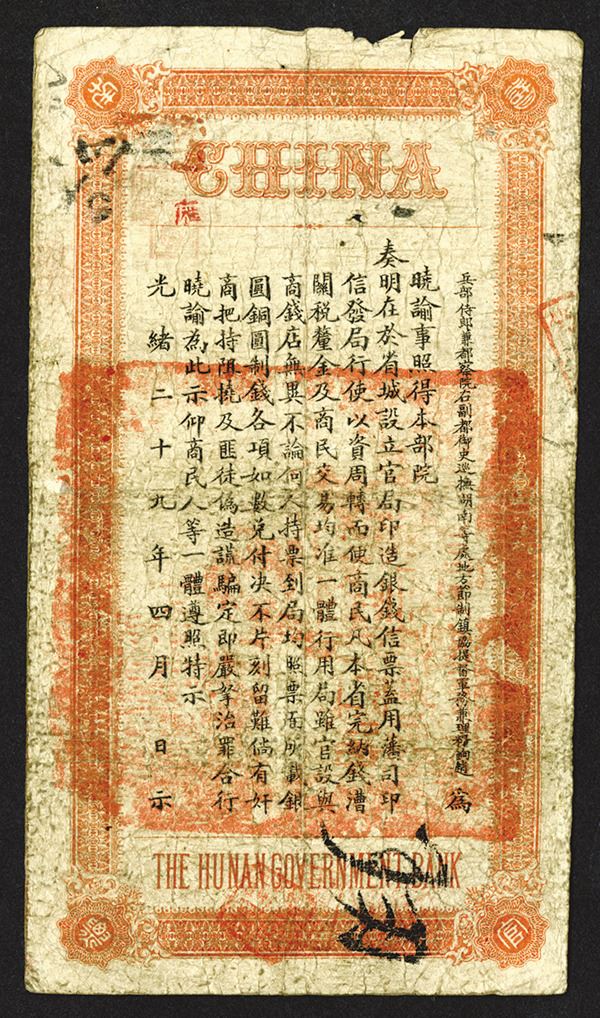 CHINA
兵部侍郎兼都察院右副都御史巡撫湖南等處地方節制鎮協提督軍務兼理糧餉趙 為
曉諭事照得本部院
奏明在於省城設立官局印造銀錢信票蓋用藩司印
信發局行使以資周轉而便商民凡本省完納錢漕
關稅釐金及商民交易均准一體行用局雖官設與
商錢店無異不論何人持票到局均照票面所載銀
圓銅圓制錢各項如數兌付决不片刻留難倘有奸
商把持阻撓及匪徒偽造謊騙定即嚴拏治罪合行
曉諭為此示仰商民人等一體遵照特示
光緒二十九年四月 日示
THE HUNAN GOVERNMENT BANK
官